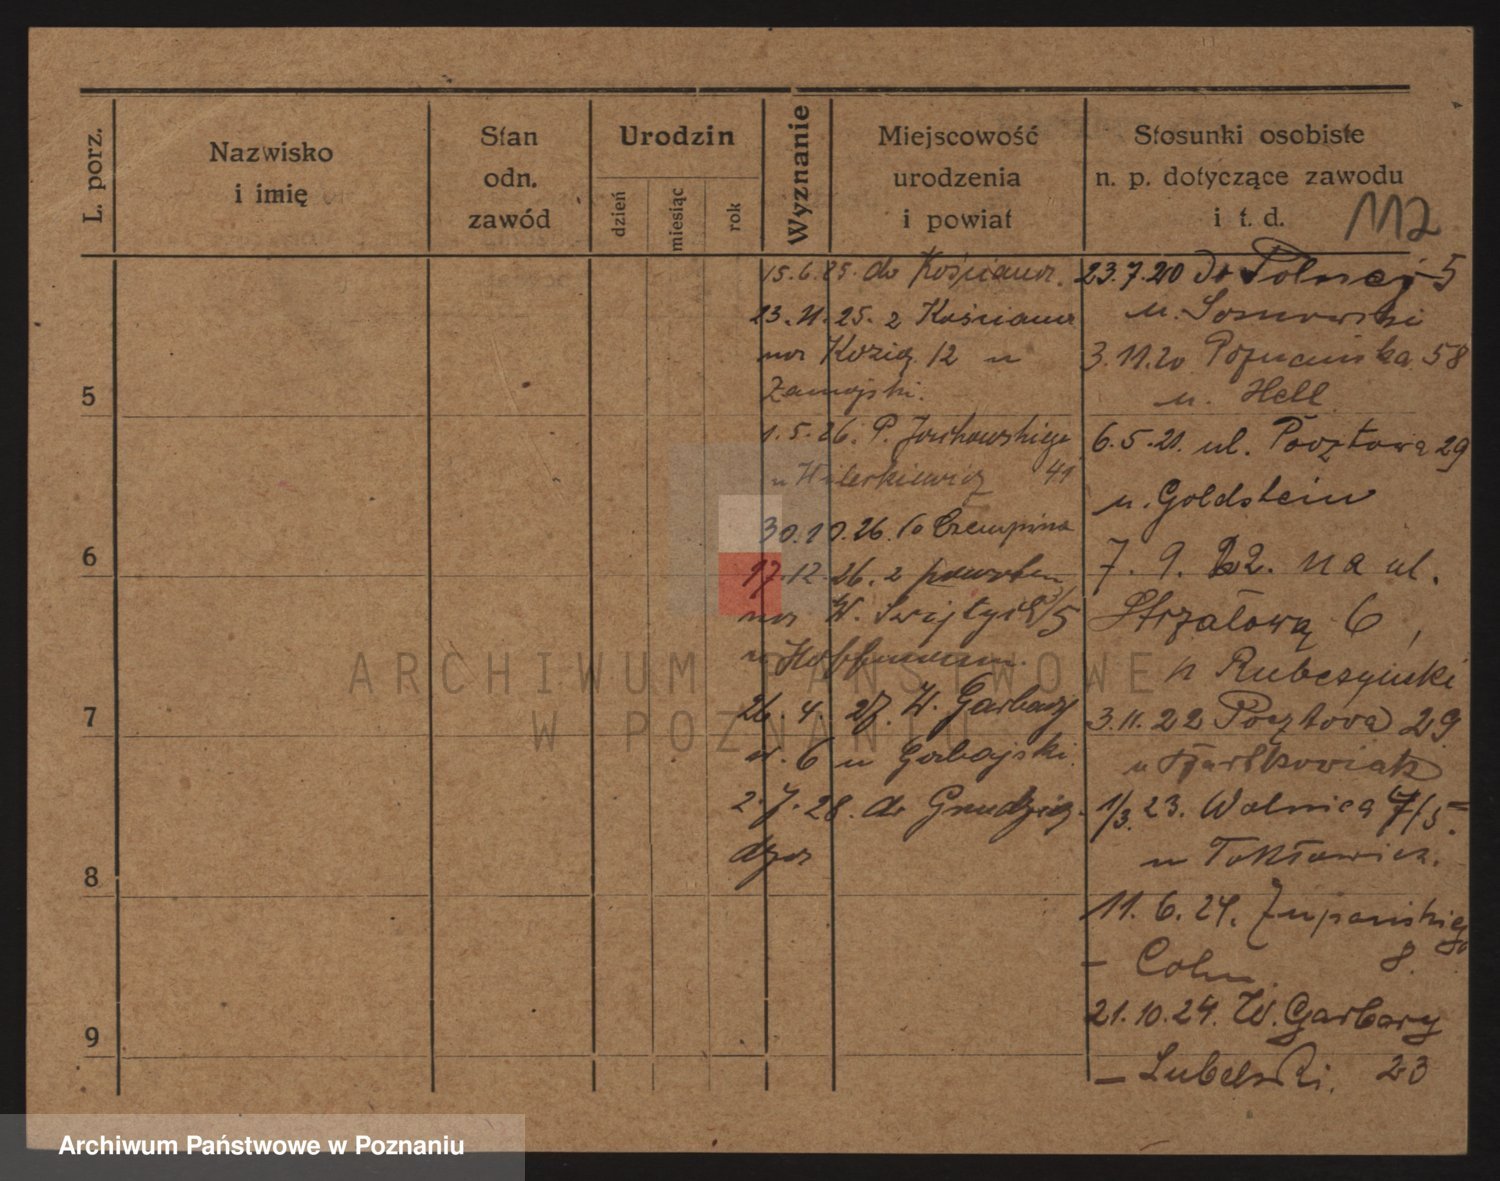 L. porz.
Nazwisko
i imię
Stan
odn.
zawód
Urodzin
dzień
miesiąc
rok
Wyznanie
Miejscowość
urodzenia
i powiat
Stosunki osobiste
n. p. dotyczące zawodu
i t. d.
112
5
6
7
8
9
15.6.25. do Kościana.
23.11.25. z Kościana
na Kozią 12 u
Zamojski.
1.5.26. P. Jackowskiego
41
30.10.26. do Czempina
17.12.26. z powrotem
na W. Świętych 5
u Hoffmann.
26.4.27. W. Garbary
6 u Garbajski.
2.7.28. do Grudzią-
dza
23.7.20 do Polnej 5
u. Sosnowski
3.11.20 Poznańska 58
u. Hell
6.5.21. ul. Pocztowa 29
u. Goldstein
7.9.22. na ul.
Strzałową 6,
u Rubczyński
3.11.22 Pocztowa 29
u Bartkowiak
1/3.23. Wolnica 7/5.
u
11.6.24. Żupańskiego
- Cohn. 8.
21.10.24. W. Garbary
- Lubelski. 23
ARCHIWUM PAŃSTWOWE
W POZNANIU
Archiwum Państwowe w Poznaniu